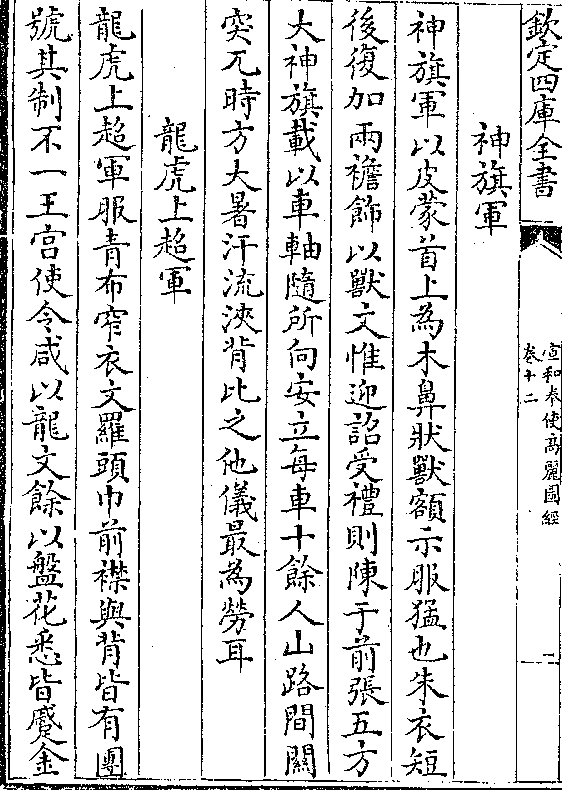 欽定四庫全書
宣和奉使高麗圖經
卷十二
神旗軍
神旗軍以皮蒙首上為木鼻狀獸額示服猛也朱衣短
後復加兩襜飾以獸文惟迎詔受禮則陳于前張五方
大神旗載以車軸隨所向安立每車十餘人山路間關
突兀時方大暑汗流浹背比之他儀最為勞耳
龍虎上超軍
龍虎上超軍服青布窄衣文羅頭巾前襟與背皆有團
號其制不一王宮使令咸以龍文餘以盤花悉皆蹙金